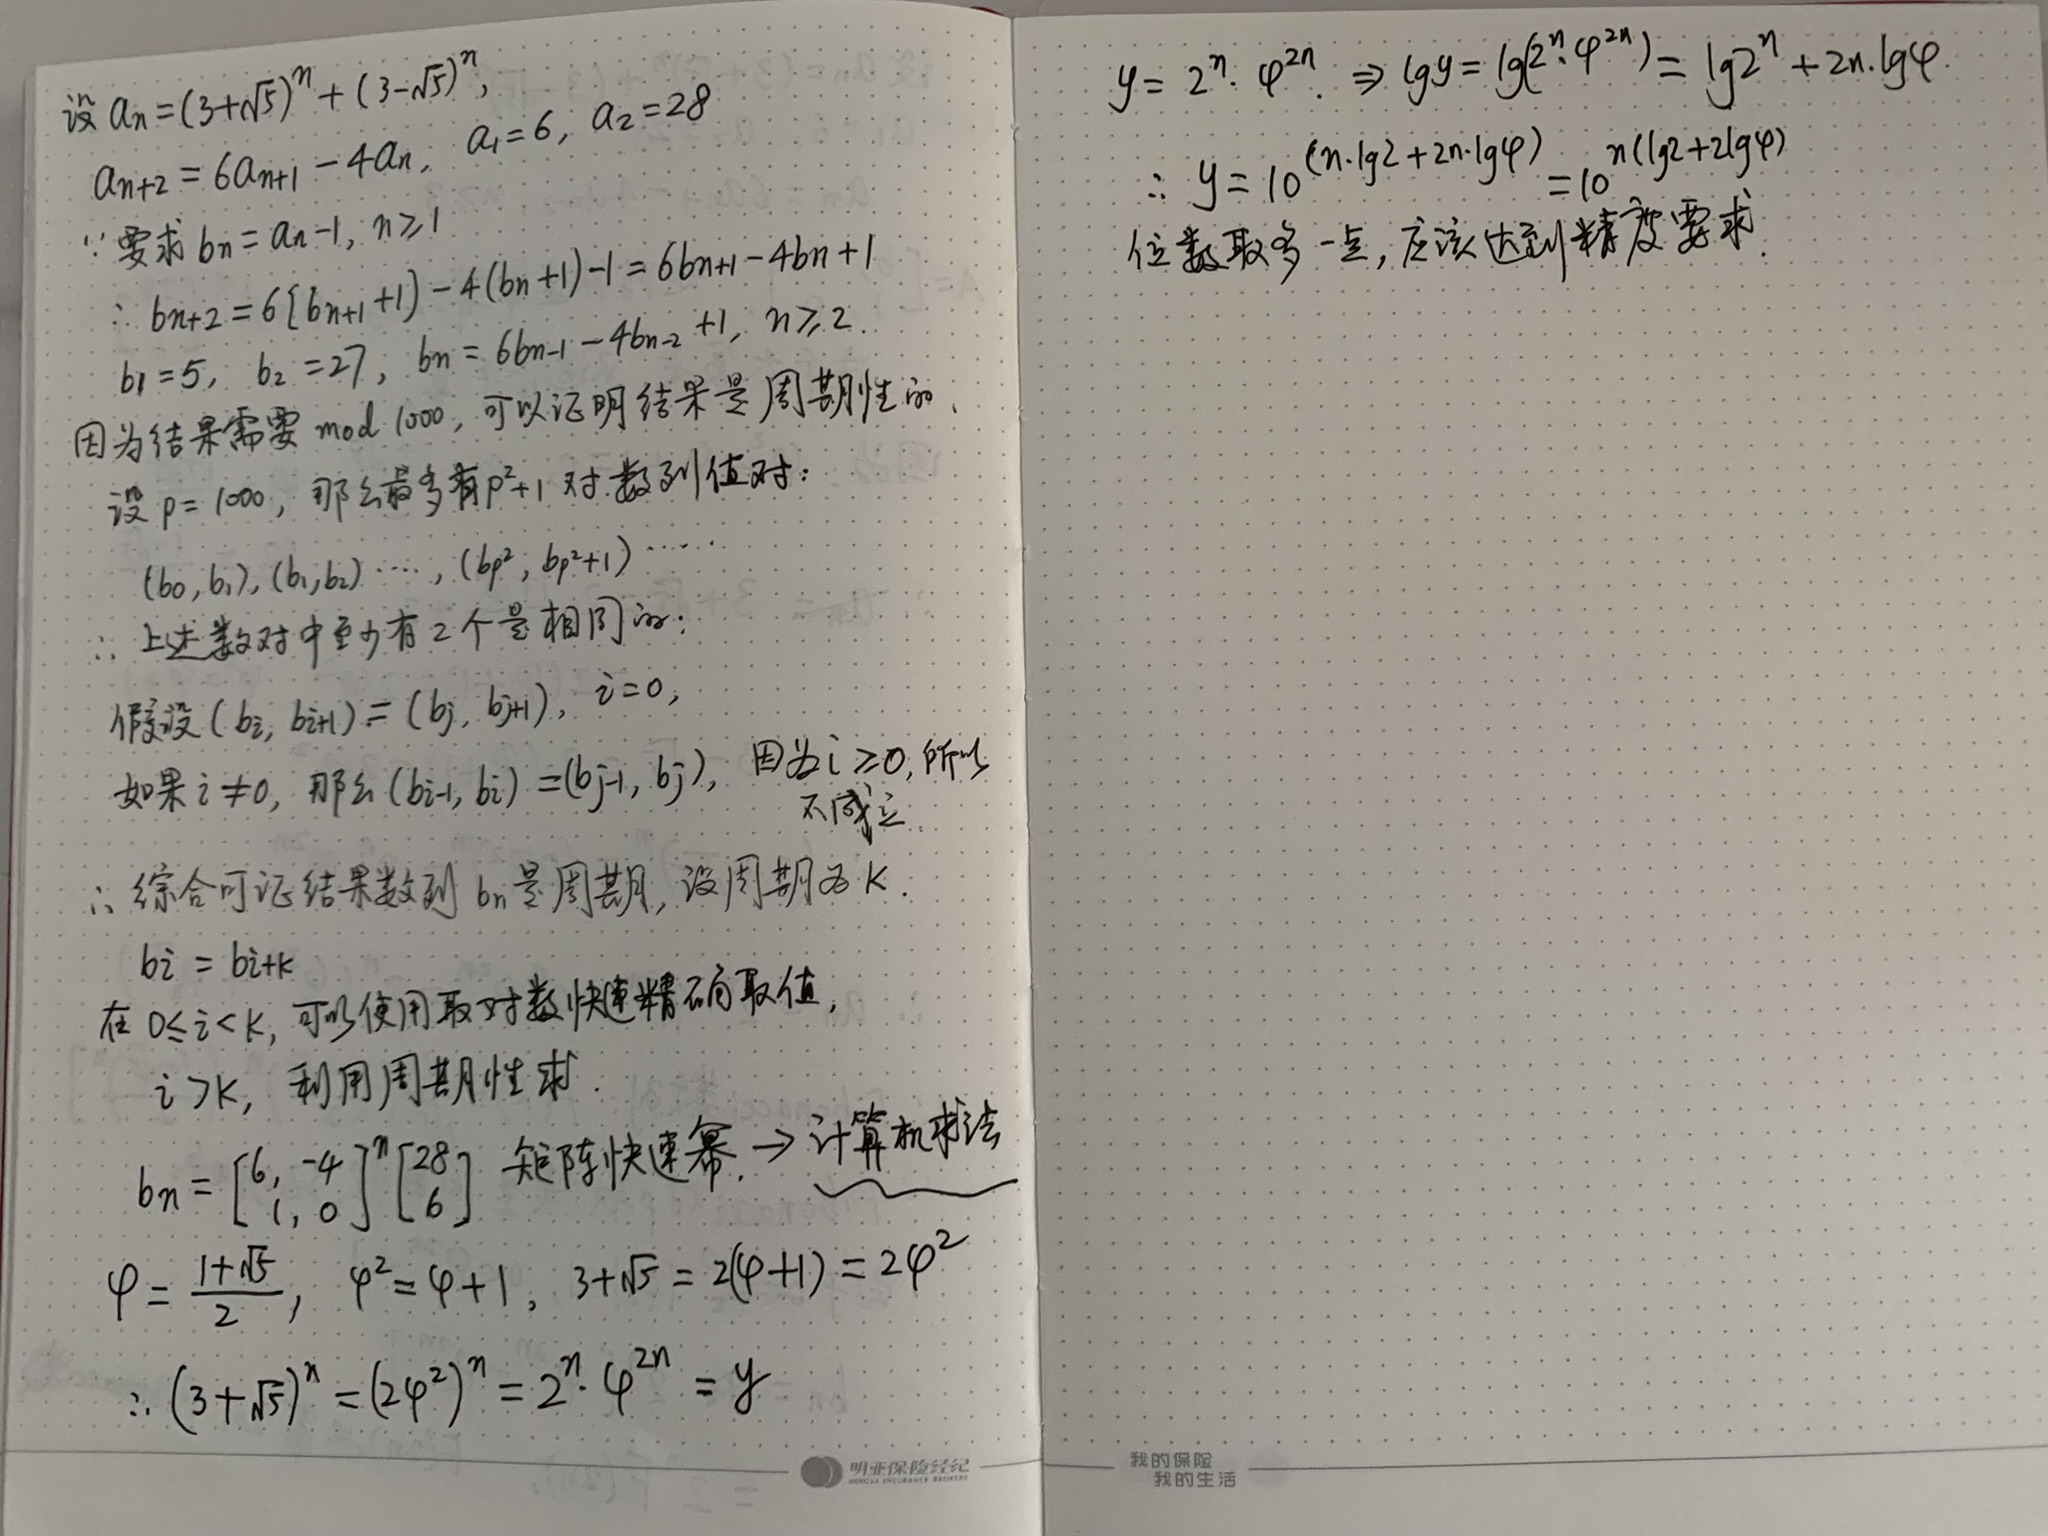 设 aₙ = (3+√5)ⁿ + (3-√5)ⁿ,
aₙ₊₂ = 6aₙ₊₁ - 4aₙ, a₁=6, a₂=28
∵ 要求 bₙ = aₙ-1, n≥1
∴ bₙ₊₂ = 6[bₙ₊₁+1) - 4(bₙ+1) - 1 = 6bₙ₊₁ - 4bₙ + 1
b₁=5, b₂=27, bₙ = 6bₙ₋₁ - 4bₙ₋₂ + 1, n≥2.
因为结果需要 mod 1000, 可以证明结果是周期性的.
设 p = 1000, 那么最多有 p²+1 对数列值对:
(b₀, b₁), (b₁, b₂) ····, (b_{p²}, b_{p²+1}) ·····
∴ 上述数对中至少有2个是相同的:
假设 (bᵢ, bᵢ₊₁) = (bⱼ, bⱼ₊₁), i=0,
如果 i≠0, 那么 (bᵢ₋₁, bᵢ) = (bⱼ₋₁, bⱼ), 因为 i≥0, 所以
不成立.
∴ 综合可证结果数列 bₙ 是周期, 设周期为 K.
bᵢ = bᵢ₊ₖ
在 0≤i<K, 可以使用取对数快速精确取值,
i>K, 利用周期性求.
bₙ = [6, -4
1, 0]ⁿ [28
6] 矩阵快速幂. → 计算机求法
φ = (1+√5)/2, φ² = φ+1, 3+√5 = 2(φ+1) = 2φ²
∴ (3+√5)ⁿ = (2φ²)ⁿ = 2ⁿ·φ²ⁿ = y
明亚保险经纪
MINGYA INSURANCE BROKERS
y = 2ⁿ·φ²ⁿ. ⇒ lg y = lg(2ⁿ·φ²ⁿ) = lg2ⁿ + 2n·lgφ.
∴ y = 10^(n·lg2+2n·lgφ) = 10^n(lg2+2lgφ)
位数取多一点, 应该达到精度要求.
我的保险
我的生活